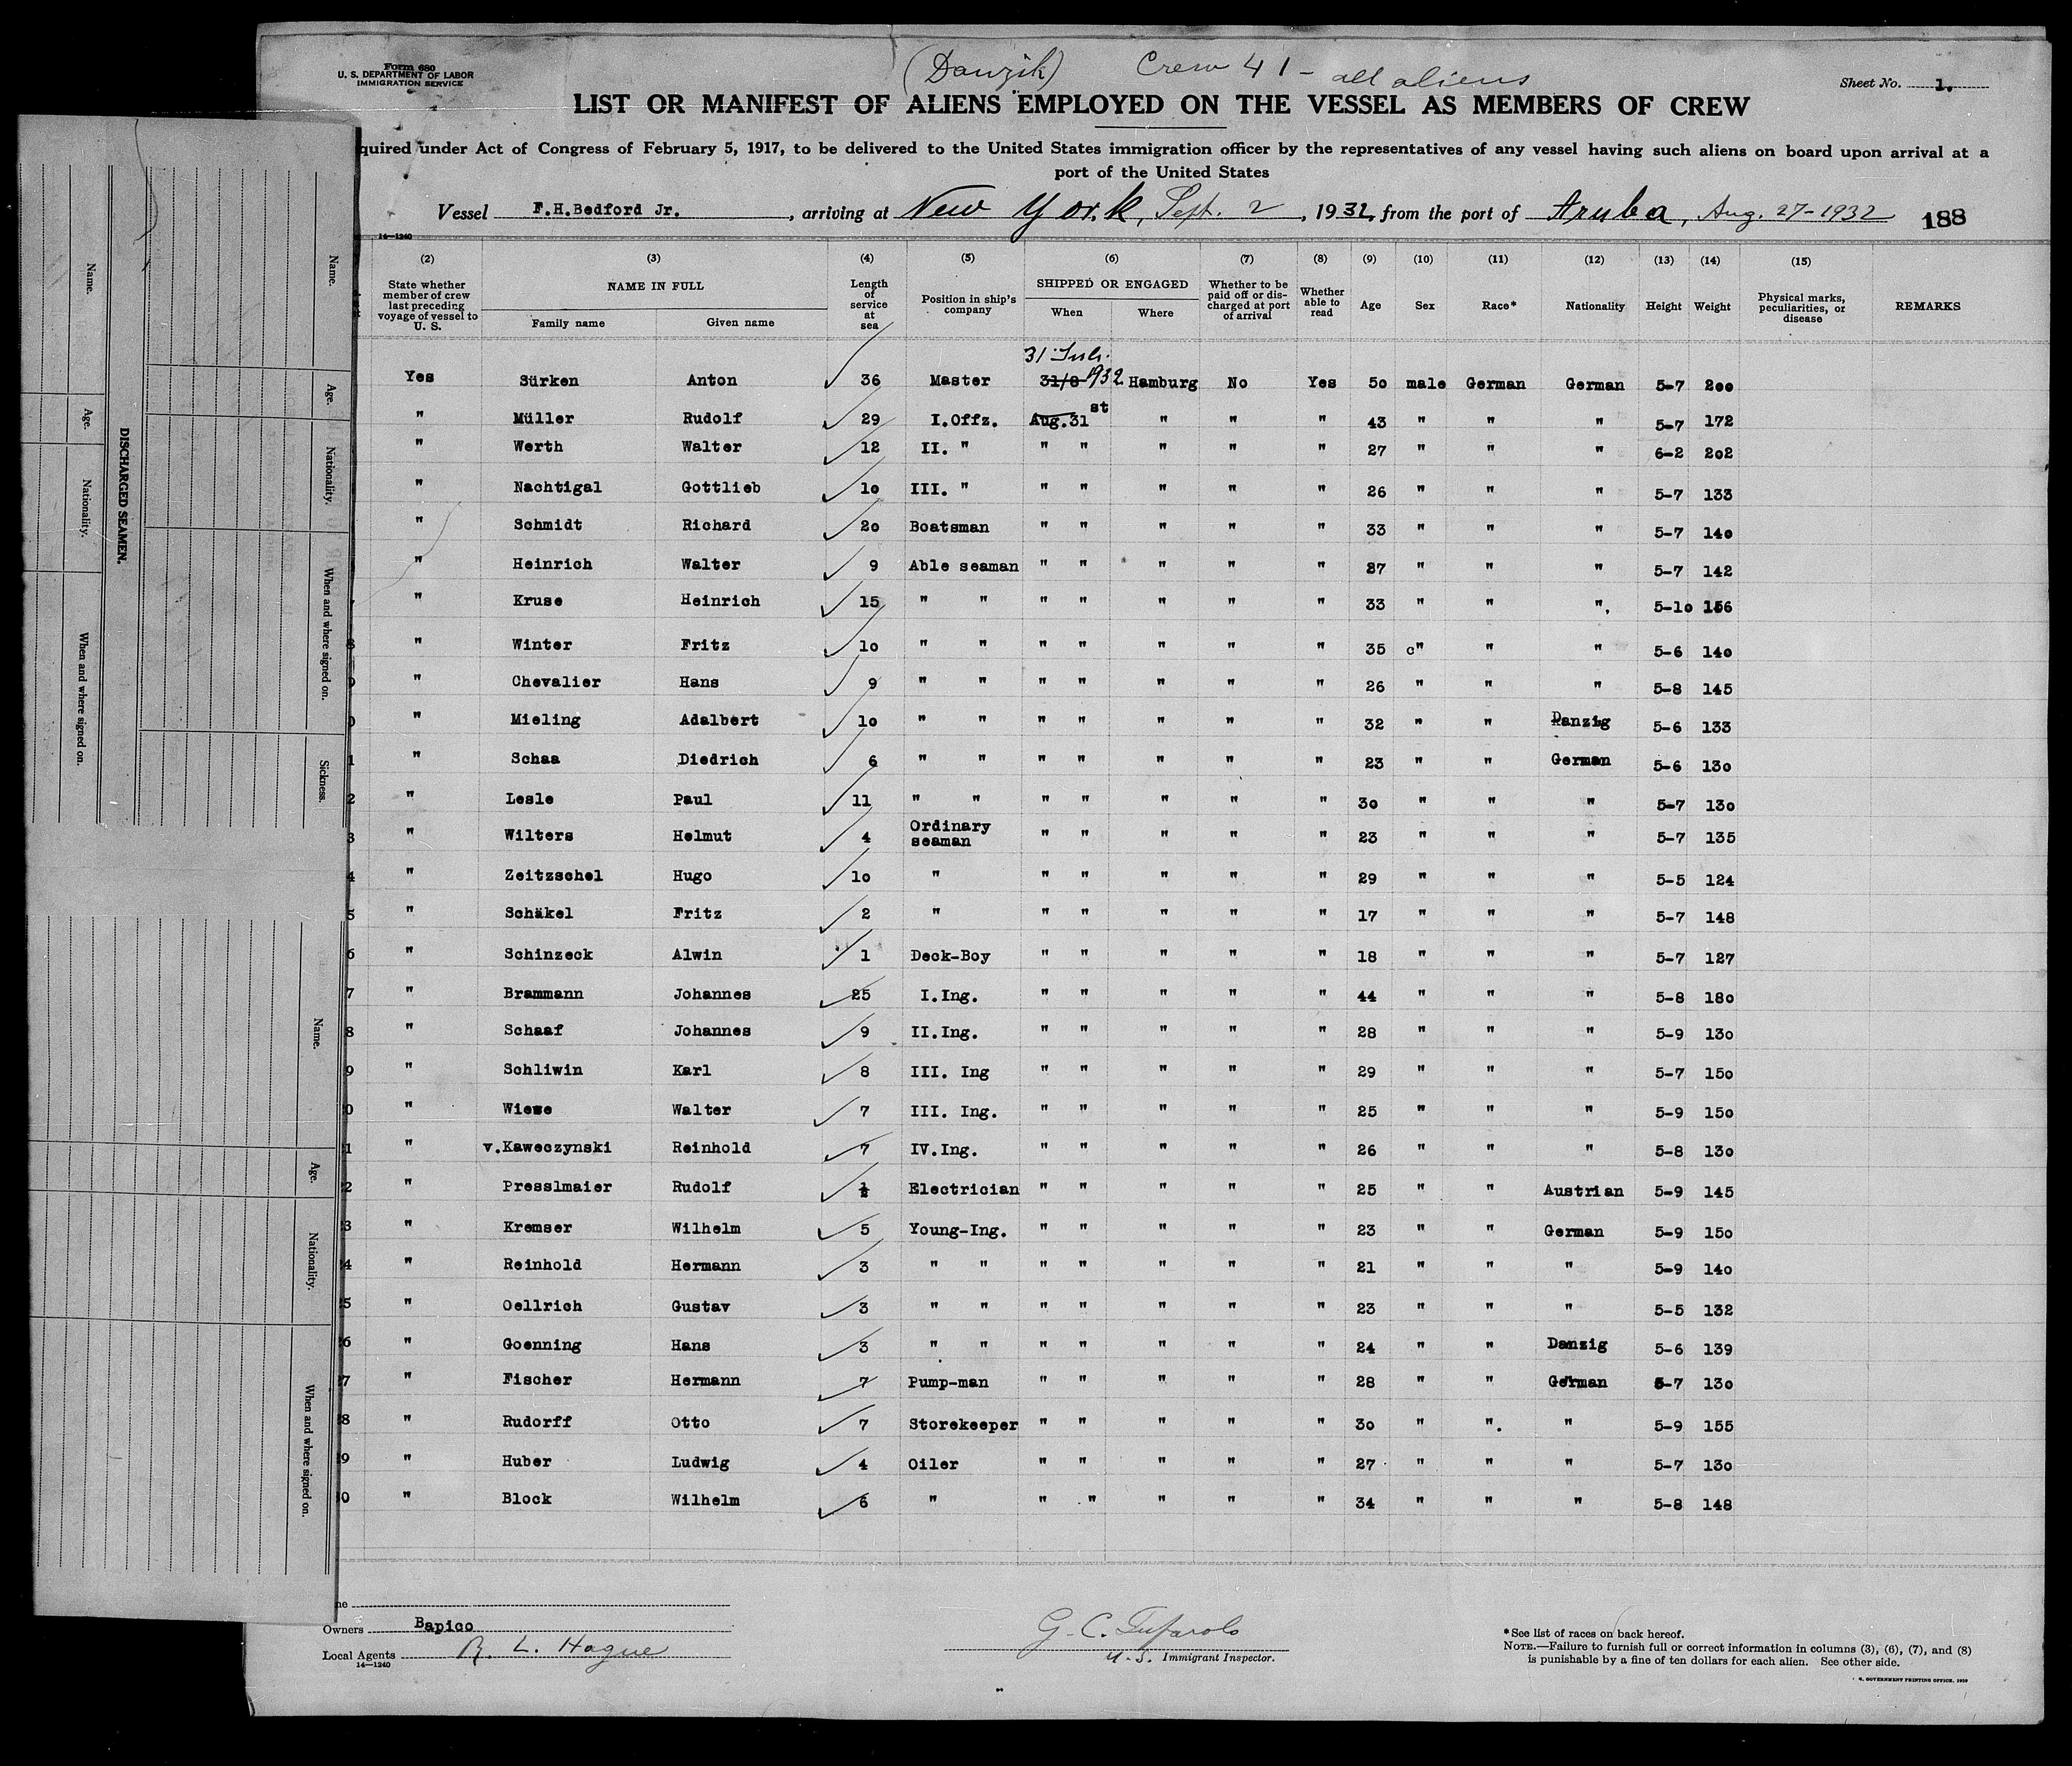 Form 680
U. S. DEPARTMENT OF LABOR
IMMIGRATION SERVICE
(Danzik) Crew 41 - all aliens
Sheet No. 1.
LIST OR MANIFEST OF ALIENS EMPLOYED ON THE VESSEL AS MEMBERS OF CREW
quired under Act of Congress of February 5, 1917, to be delivered to the United States immigration officer by the representatives of any vessel having such aliens on board upon arrival at a
port of the United States
Vessel F.H.Bedford Jr., arriving at New York, Sept. 2, 1932, from the port of Aruba, Aug. 27-1932 188
14—1240
(2) (3) (4) (5) (6) (7) (8) (9) (10) (11) (12) (13) (14) (15)
State whether member of crew last preceding voyage of vessel to U. S. NAME IN FULL Family name Given name Length of service at sea Position in ship's company SHIPPED OR ENGAGED When Where Whether to be paid off or discharged at port of arrival Whether able to read Age Sex Race* Nationality Height Weight Physical marks, peculiarities, or disease REMARKS
31 Juli
Yes Sürken Anton 36 Master 31/8 1932 Hamburg No Yes 50 male German German 5-7 200
" Müller Rudolf 29 I.Offz. Aug.31st " " " 43 " " " 5-7 172
" Werth Walter 12 II. " " " " " " 27 " " " 6-2 202
" Nachtigal Gottlieb 10 III. " " " " " " 26 " " " 5-7 133
" Schmidt Richard 20 Boatsman " " " " " 33 " " " 5-7 140
" Heinrich Walter 9 Able seaman " " " " " 27 " " " 5-7 142
" Kruse Heinrich 15 " " " " " " " 33 " " " 5-10 156
" Winter Fritz 10 " " " " " " " 35 " " " 5-6 140
" Chevalier Hans 9 " " " " " " " 26 " " " 5-8 145
" Mieling Adalbert 10 " " " " " " " 32 " " Danzig 5-6 133
" Schaa Diedrich 6 " " " " " " " 23 " " German 5-6 130
" Lesle Paul 11 " " " " " " " 30 " " " 5-7 130
" Wilters Helmut 4 Ordinary seaman " " " " " 23 " " " 5-7 135
" Zeitzschel Hugo 10 " " " " " " 29 " " " 5-5 124
" Schäkel Fritz 2 " " " " " " 17 " " " 5-7 148
" Schinzeck Alwin 1 Deck-Boy " " " " " 18 " " " 5-7 127
" Brammann Johannes 25 I.Ing. " " " " " 44 " " " 5-8 180
" Schaaf Johannes 9 II.Ing. " " " " " 28 " " " 5-9 130
" Schliwin Karl 8 III. Ing " " " " " 29 " " " 5-7 150
" Wiese Walter 7 III. Ing. " " " " " 25 " " " 5-9 150
" v.Kaweczynski Reinhold 7 IV.Ing. " " " " " 26 " " " 5-8 130
" Presslmaier Rudolf ½ Electrician " " " " " 25 " " Austrian 5-9 145
" Kremser Wilhelm 5 Young-Ing. " " " " " 23 " " German 5-9 150
" Reinhold Hermann 3 " " " " " " " 21 " " " 5-9 140
" Oellrich Gustav 3 " " " " " " " 23 " " " 5-5 132
" Goenning Hans 3 " " " " " " " 24 " " Danzig 5-6 139
" Fischer Hermann 7 Pump-man " " " " " 28 " " German 5-7 130
" Rudorff Otto 7 Storekeeper " " " " " 30 " " " 5-9 155
" Huber Ludwig 4 Oiler " " " " " 27 " " " 5-7 130
" Block Wilhelm 6 " " " " " " 34 " " " 5-8 148
Owners Bapico
Local Agents R. L. Hague
14—1240
G. C. Tufarolo
U.S. Immigrant Inspector.
*See list of races on back hereof.
NOTE.—Failure to furnish full or correct information in columns (3), (6), (7), and (8)
is punishable by a fine of ten dollars for each alien. See other side.
GOVERNMENT PRINTING OFFICE
DISCHARGED SEAMEN.
Name. Age. Nationality. When and where signed on.
Name. Age. Nationality. When and where signed on. Sickness.
Name. Age. Nationality. When and where signed on.